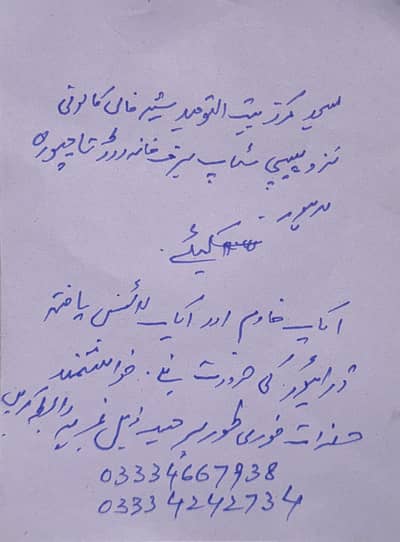 مسجد مرکز بیت التوحید شیر خان کالونی
نزد پیپسی سٹاپ برف خانہ روڈ تاجپورہ
لاہور
کیلئے
ایک خادم اور ایک لائسنس یافتہ
ڈرائیور کی ضرورت ہے۔ خواہشمند
حضرات فوری طور پر درج ذیل نمبر پر رابطہ کریں
03334667938
03334242734